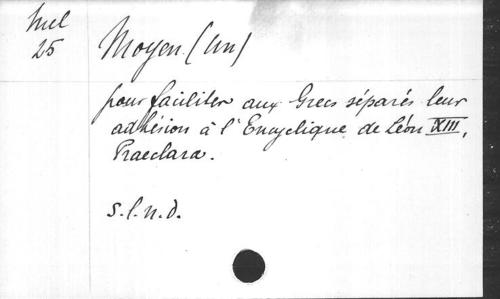 Mel
25
Moyen (Un)
pour faciliter aux Grecs séparés leur
adhésion à l'Encyclique de Léon XIII,
Praeclara.
s.l.n.d.